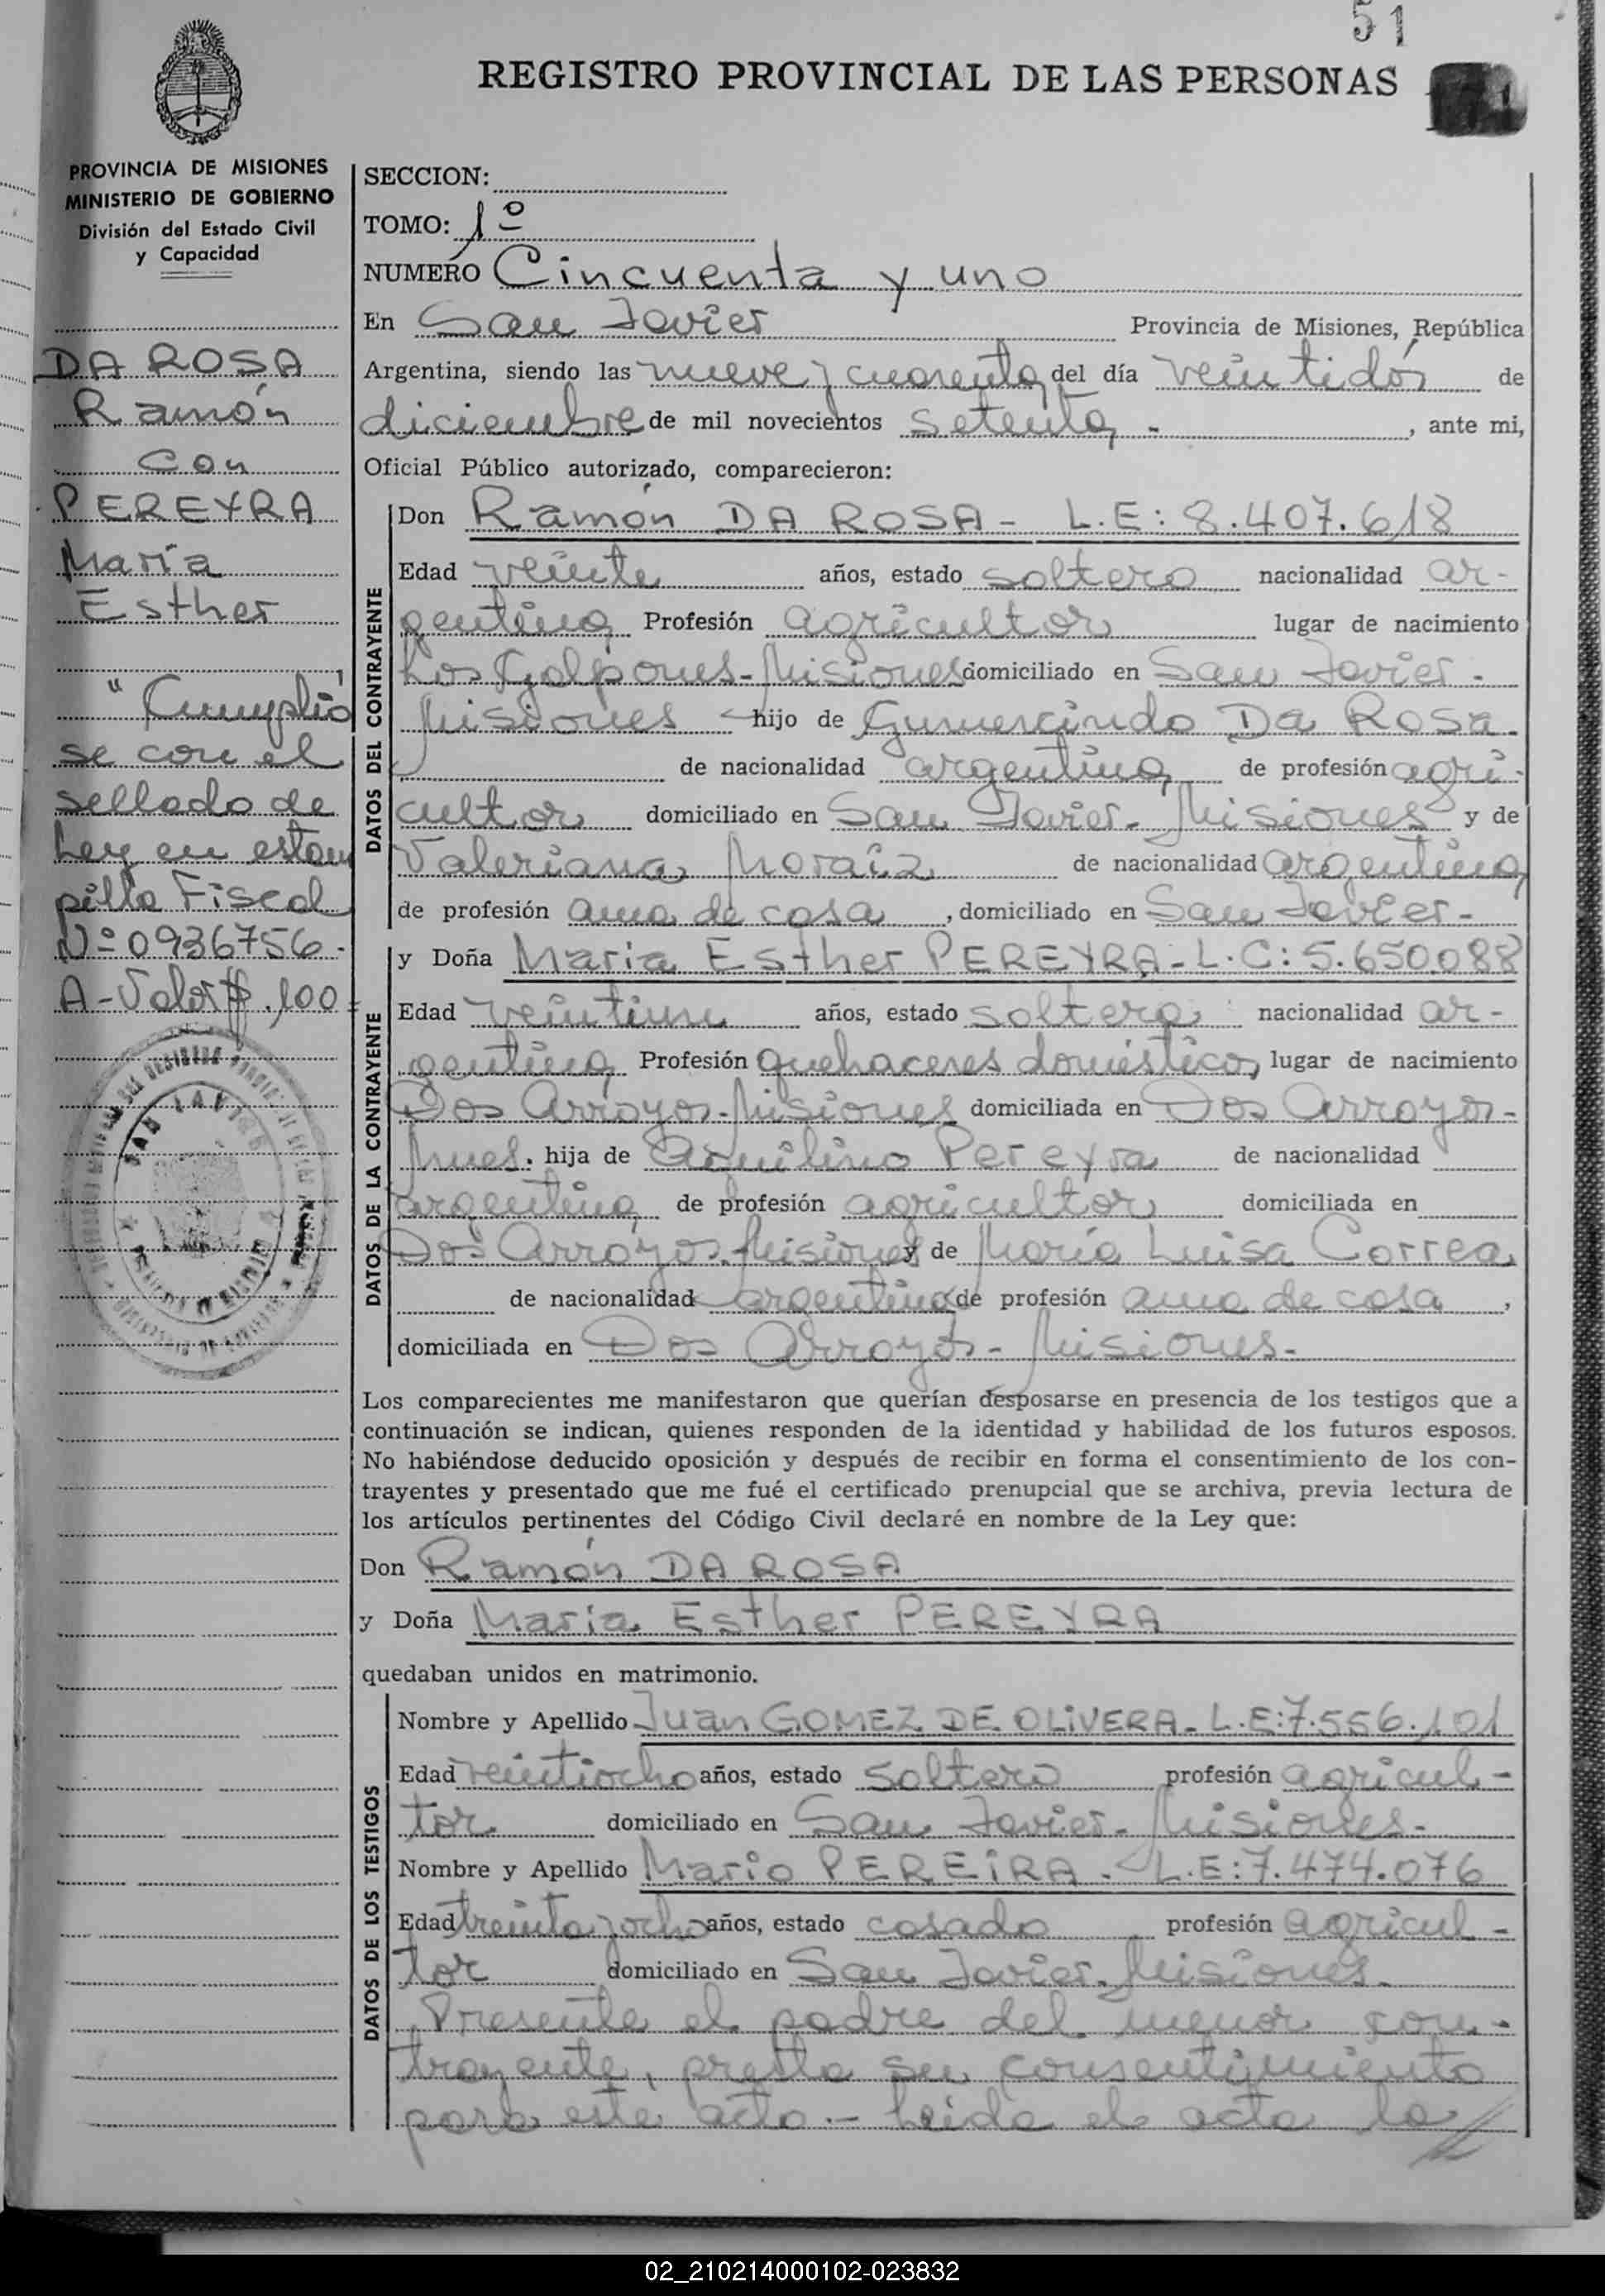 51
REGISTRO PROVINCIAL DE LAS PERSONAS
PROVINCIA DE MISIONES
MINISTERIO DE GOBIERNO
División del Estado Civil
y Capacidad
DA ROSA
Ramón
con
PEREYRA
María
Esther
"Cumplió
se con el
sellado de
Ley en estam
pilla Fiscal
Nº 0936756-
A-Valor $.100
SECCION:
TOMO: 1º
NUMERO Cincuenta y uno
En San Javier Provincia de Misiones, República
Argentina, siendo las nueve y cuarenta del día veintidós de
diciembre de mil novecientos setenta -, ante mi,
Oficial Público autorizado, comparecieron:
DATOS DEL CONTRAYENTE
Don Ramón DA ROSA - L.E: 8.407.618
Edad veinte años, estado soltero nacionalidad ar-
gentina Profesión agricultor lugar de nacimiento
Los Galpones-Misiones domiciliado en San Javier-
Misiones hijo de Gumercindo Da Rosa-
de nacionalidad argentina de profesión agri-
cultor domiciliado en San Javier-Misiones y de
Valeriana Moraiz de nacionalidad argentina
de profesión ama de casa, domiciliado en San Javier-
DATOS DE LA CONTRAYENTE
y Doña María Esther PEREYRA-L.C: 5.650.088
Edad veintiun años, estado soltera nacionalidad ar-
gentina Profesión quehaceres domésticos lugar de nacimiento
Dos Arroyos-Misiones domiciliada en Dos Arroyos-
Mnes. hija de Aquilino Pereyra de nacionalidad
argentina de profesión agricultor domiciliada en
Dos Arroyos-Misiones y de María Luisa Correa
de nacionalidad argentina de profesión ama de casa,
domiciliada en Dos Arroyos-Misiones-
Los comparecientes me manifestaron que querían desposarse en presencia de los testigos que a
continuación se indican, quienes responden de la identidad y habilidad de los futuros esposos.
No habiéndose deducido oposición y después de recibir en forma el consentimiento de los con-
trayentes y presentado que me fué el certificado prenupcial que se archiva, previa lectura de
los artículos pertinentes del Código Civil declaré en nombre de la Ley que:
Don Ramón DA ROSA
y Doña María Esther PEREYRA
quedaban unidos en matrimonio.
DATOS DE LOS TESTIGOS
Nombre y Apellido Juan GOMEZ DE OLIVERA-L.E: 7.556.101
Edad veintiocho años, estado soltero profesión agricul-
tor domiciliado en San Javier-Misiones-
Nombre y Apellido Mario PEREIRA - L.E: 7.474.076
Edad treinta y ocho años, estado casado profesión agricul-
tor domiciliado en San Javier-Misiones-
Presente el padre del menor con-
trayente, presta su consentimiento
para este acto.- Leida el acta la
02_210214000102-023832